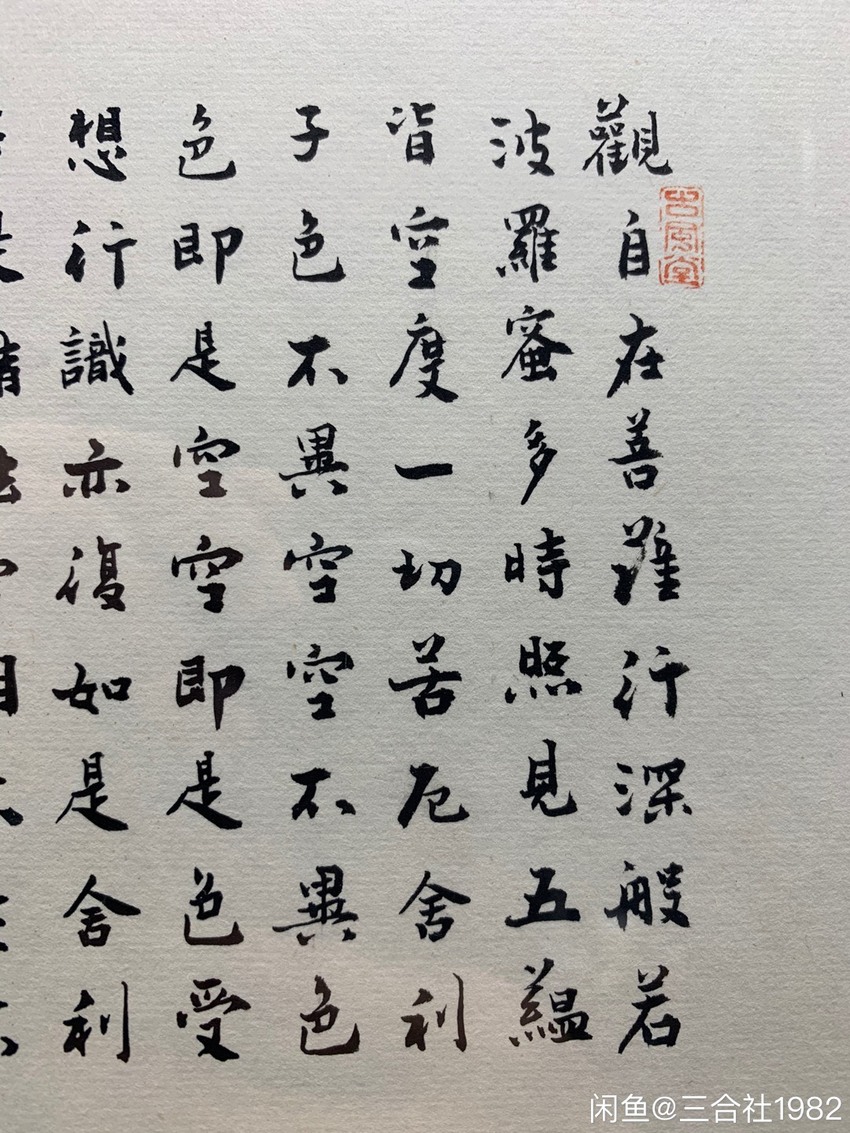 觀自在菩薩行深般若
波羅蜜多時照見五蘊
皆空度一切苦厄舍利
子色不異空空不異色
色即是空空即是色受
想行識亦復如是舍利
古風堂
闲鱼@三合社1982